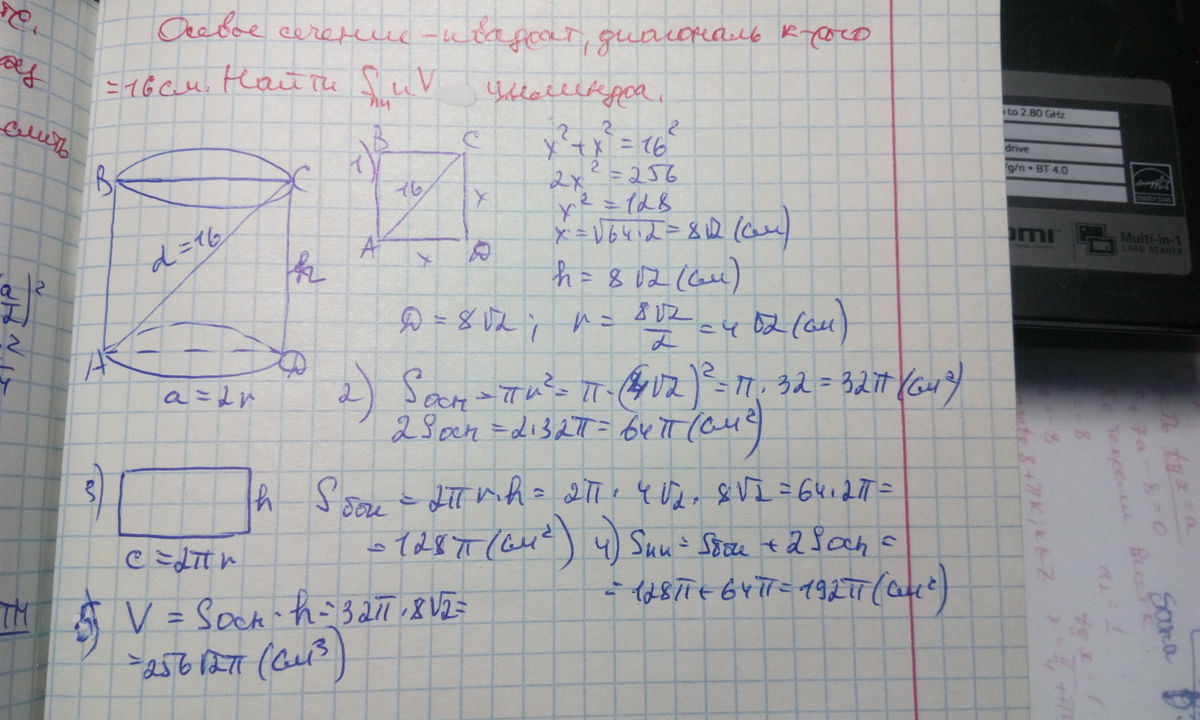 Осевое сечение - квадрат, диагональ к-рого
= 16 см. Найти Sпп и V цилиндра.
слить
B C
d = 16
h
A D
a = 2r
1)
B C
16 x
A x D
x² + x² = 16²
2x² = 256
x² = 128
x = √64·2 = 8√2 (см)
h = 8√2 (см)
D = 8√2 ; r = 8√2/2 = 4√2 (см)
2) Sосн = πr² = π·(4√2)² = π·32 = 32π (см²)
2Sосн = 2·32π = 64π (см²)
3)
h
c = 2πr
Sбок = 2πr·h = 2π·4√2·8√2 = 64·2π =
= 128π (см²) 4) Sпп = Sбок + 2Sосн =
= 128π + 64π = 192π (см²)
5) V = Sосн·h = 32π·8√2 =
= 256√2π (см³)
to 2.80 GHz
drive
/g/n + BT 4.0
ENERGY STAR
Multi-in-1
CARD READER